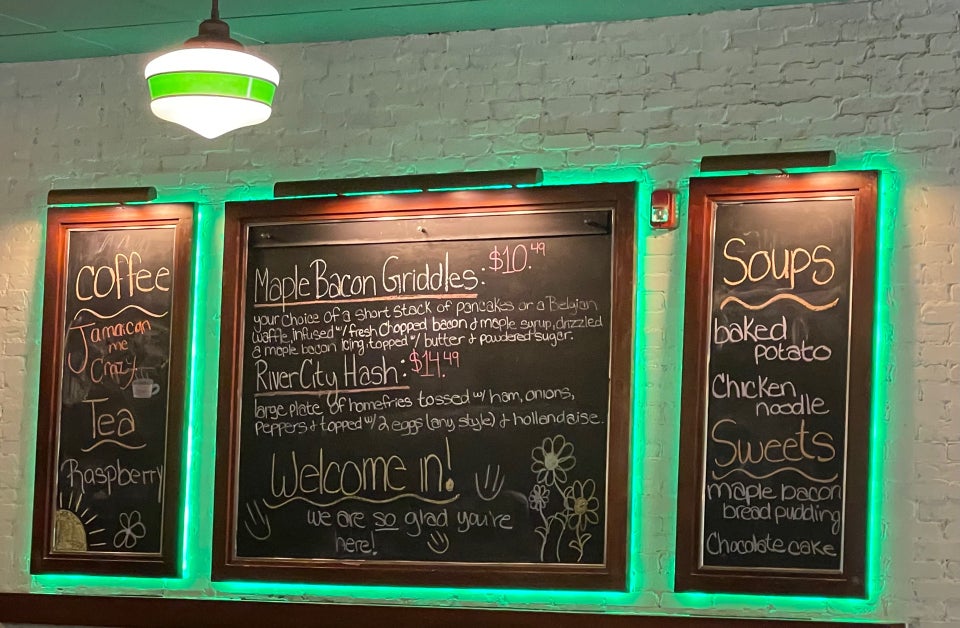 coffee
Jamaican
me
Crazy
Tea
Raspberry
Maple Bacon Griddles: $10.49
your choice of a short stack of pancakes or a Belgian
waffle, infused w/ fresh chopped bacon & maple syrup, drizzled
a maple bacon icing, topped w/ butter & powdered sugar.
River City Hash: $14.49
large plate of homefries tossed w/ ham, onions,
peppers & topped w/ 2 eggs (any style) & hollandaise.
Welcome in!
we are so glad you're
here!
Soups
baked
potato
Chicken
noodle
Sweets
maple bacon
bread pudding
Chocolate cake